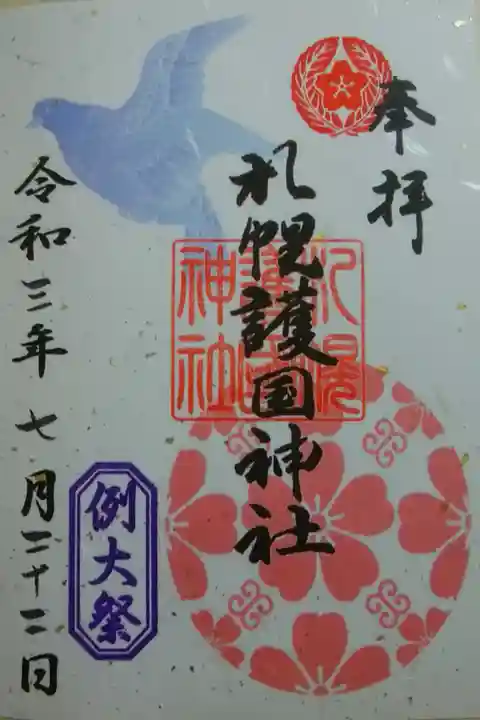 奉拝
札幌護国神社
札幌護国神社
例大祭
令和三年七月二十二日